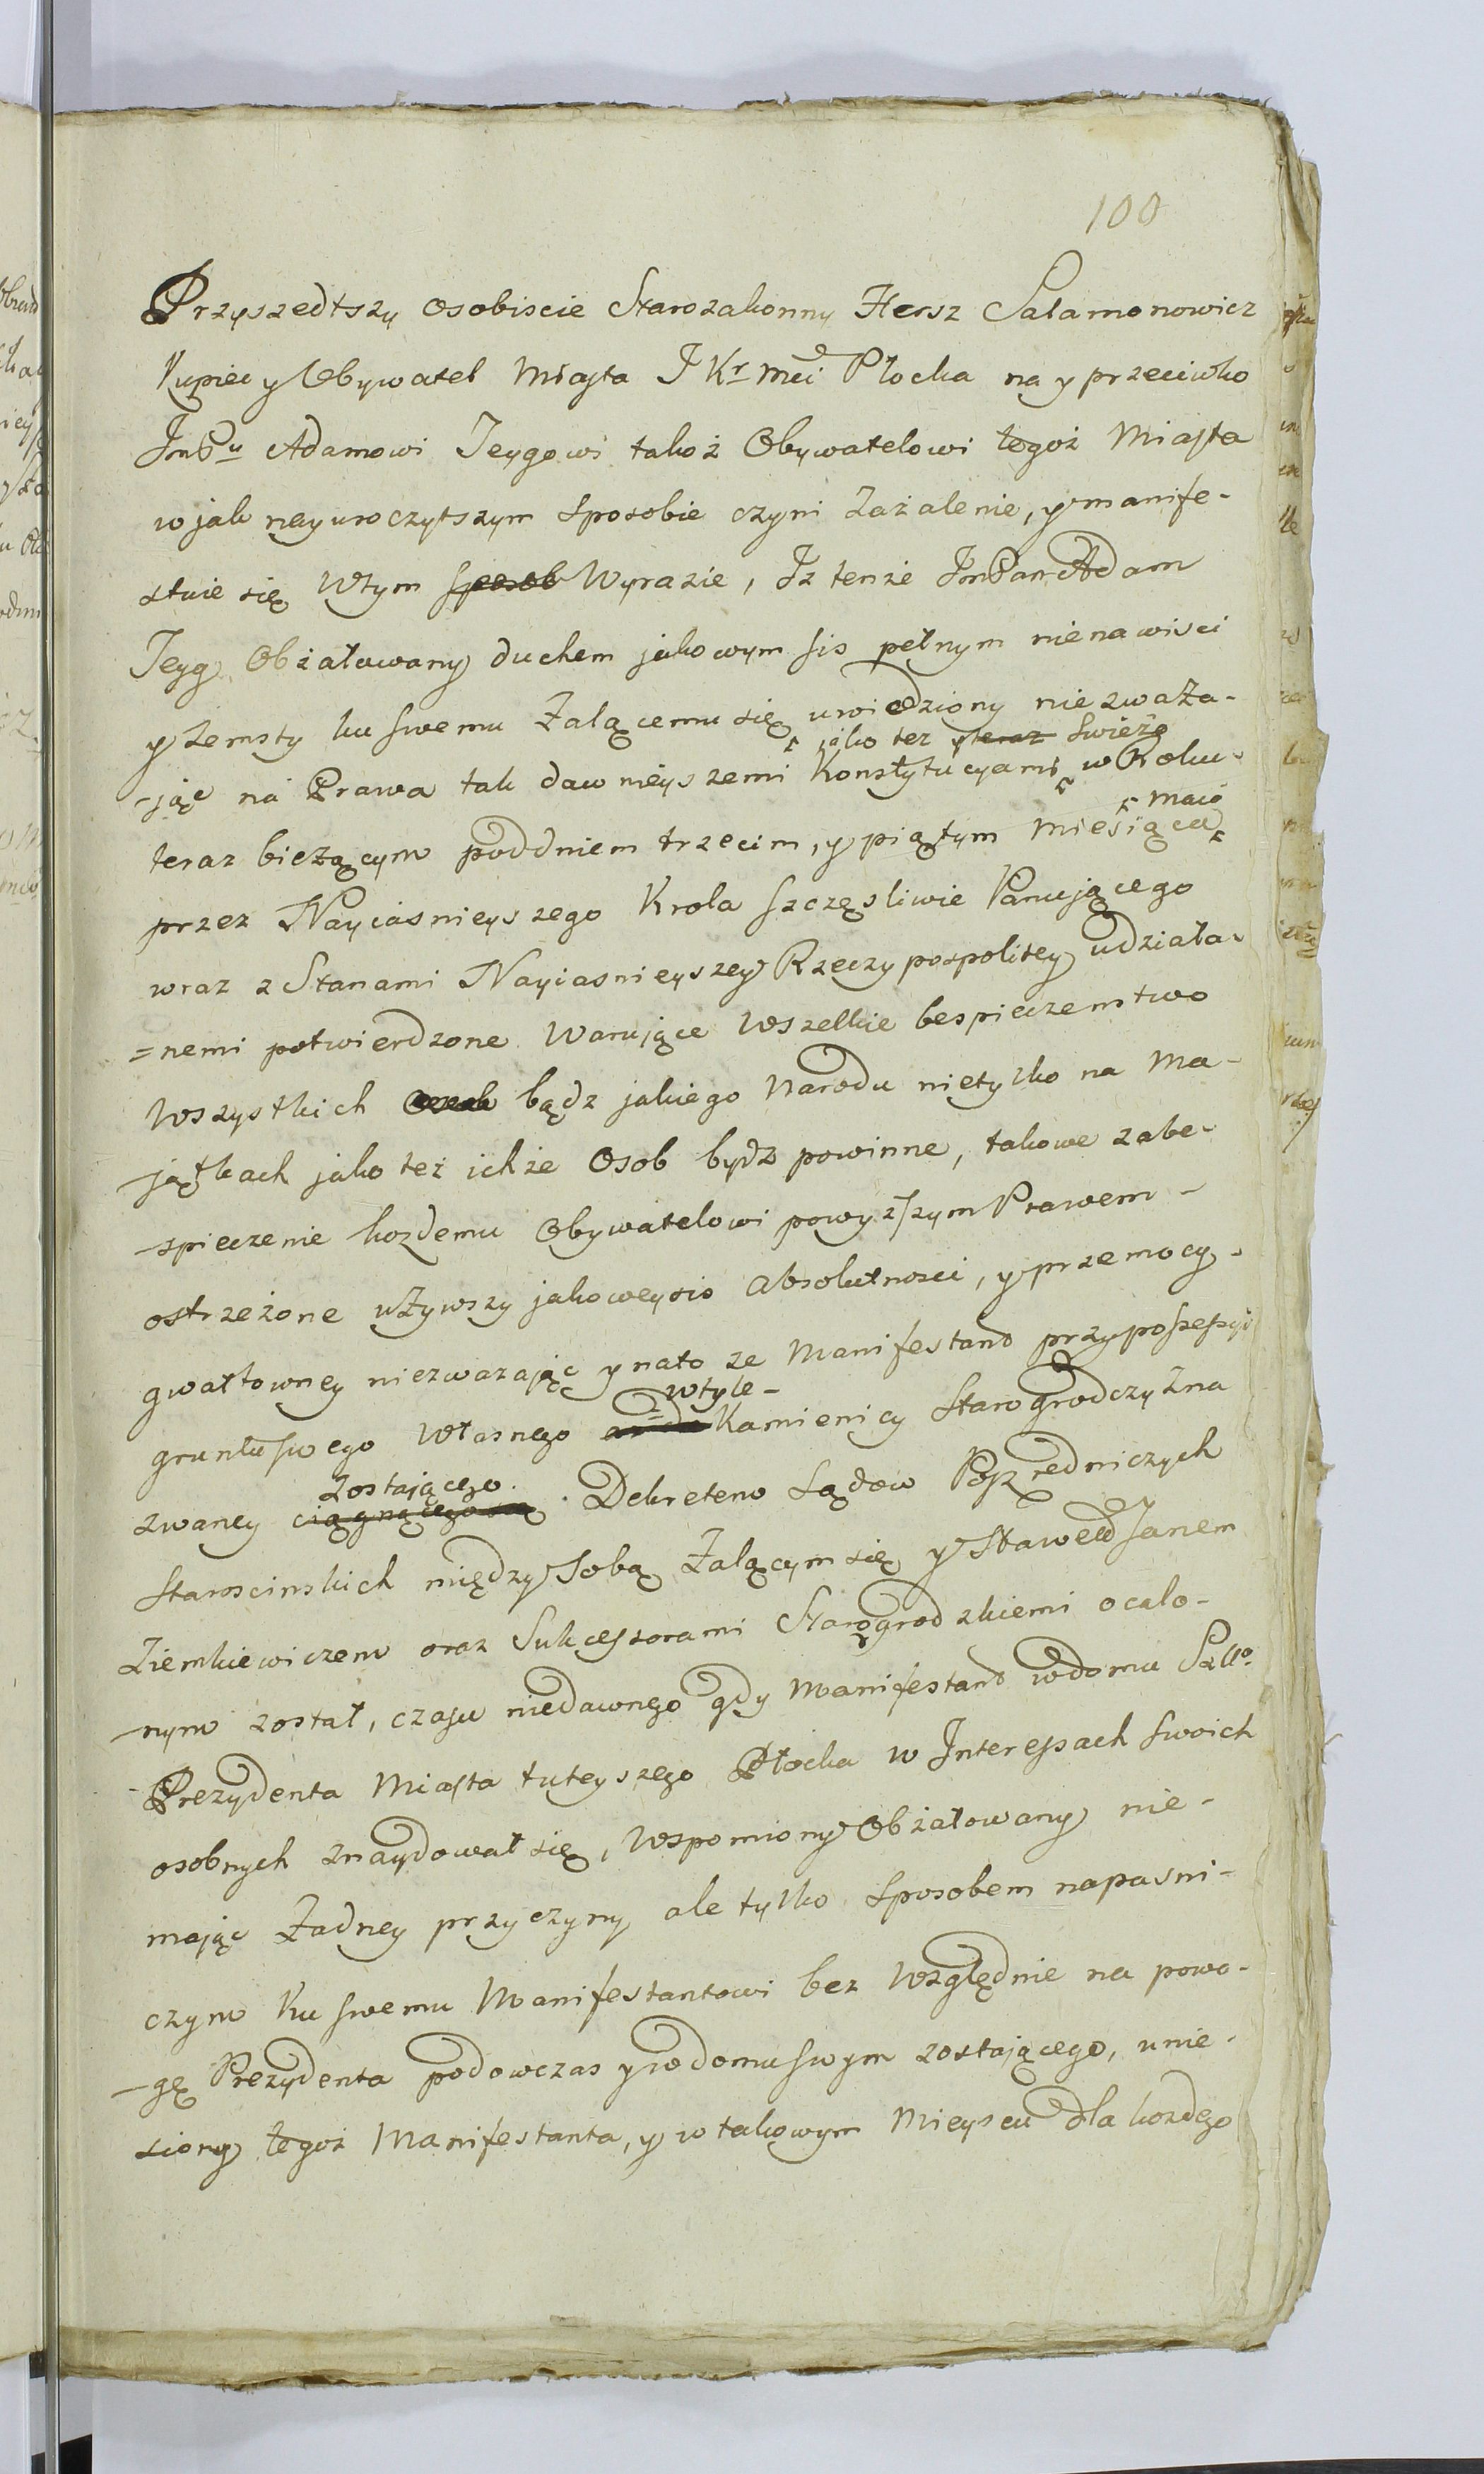 100
Przyszedtszy osobiscie Starozakonny Hersz Salamonowicz
Kupiec y Obywatel Miasta J Kr mci Płocka na y przeciwko
JmPu Adamowi Jeygowi takoż Obywatelowi tegoż Miasta
w jak nayuroczytszym sposobie czyni zażalenie, y manife-
stuie się wtym sposob Wyrazie, Iz tenże JmPan Adam
Jeyg Obżałowany duchem jakowym sis pełnym nienawisci
y zemsty ku swemu Żalącemu się uwiedziony niezwaza-
jako tez y teraz swiezo
-jąc na Prawa tak dawnieyszemi Konstytucyami w Roku
maio
teraz bieżącym pod dniem trzecim, y piątym miesiąca
przez Nayiasnieyszego Krola szczęsliwie Panującego
wraz z Stanami Nayiasnieyszey Rzeczypospolitey udziała-
=nemi potwierdzone Warujące Wszelkie bespieczenstwo
Wszystkich Osob bądz jakiego Narodu nietylko na Ma-
-jątkach jako też ichże Osob bydz powinne, takowe zabe-
-spieczenie kozdemu Obywatelowi powyzszym Prawem -
ostrzeżone używszy jakoweysis absolutnosci, y przemocy -
gwałtowney niezwazając y nato ze Manifestant przy possessyi
wtyle -
gruntu swego własnego Kamienicy Starogrodczyzna
zostającego.
zwaney ciągnącego się Dekretem Sądow Poszredniczych
Staroscinskich między Sobą Żalącym się y Sławetd Janem
Ziemkiewiczem oraz Sukcessorami Starogrodzkiemi ocalo-
-nym został, czasu niedawnego gdy Manifestant w domu Szllo
-Prezydenta Miasta tuteyszego Płocka w Interessach swoich
osobnych znaydował się, Wspomiony Obżałowany nie-
mając Żadney przyczyny ale tylko sposobem napasni-
czym ku swemu Manifestantowi bez względnie na powa-
-gę Prezydenta podowczas y w domu swym zostającego, unie-
siony tegoż Manifestanta, y w takowym Mieyscu dla kozdego